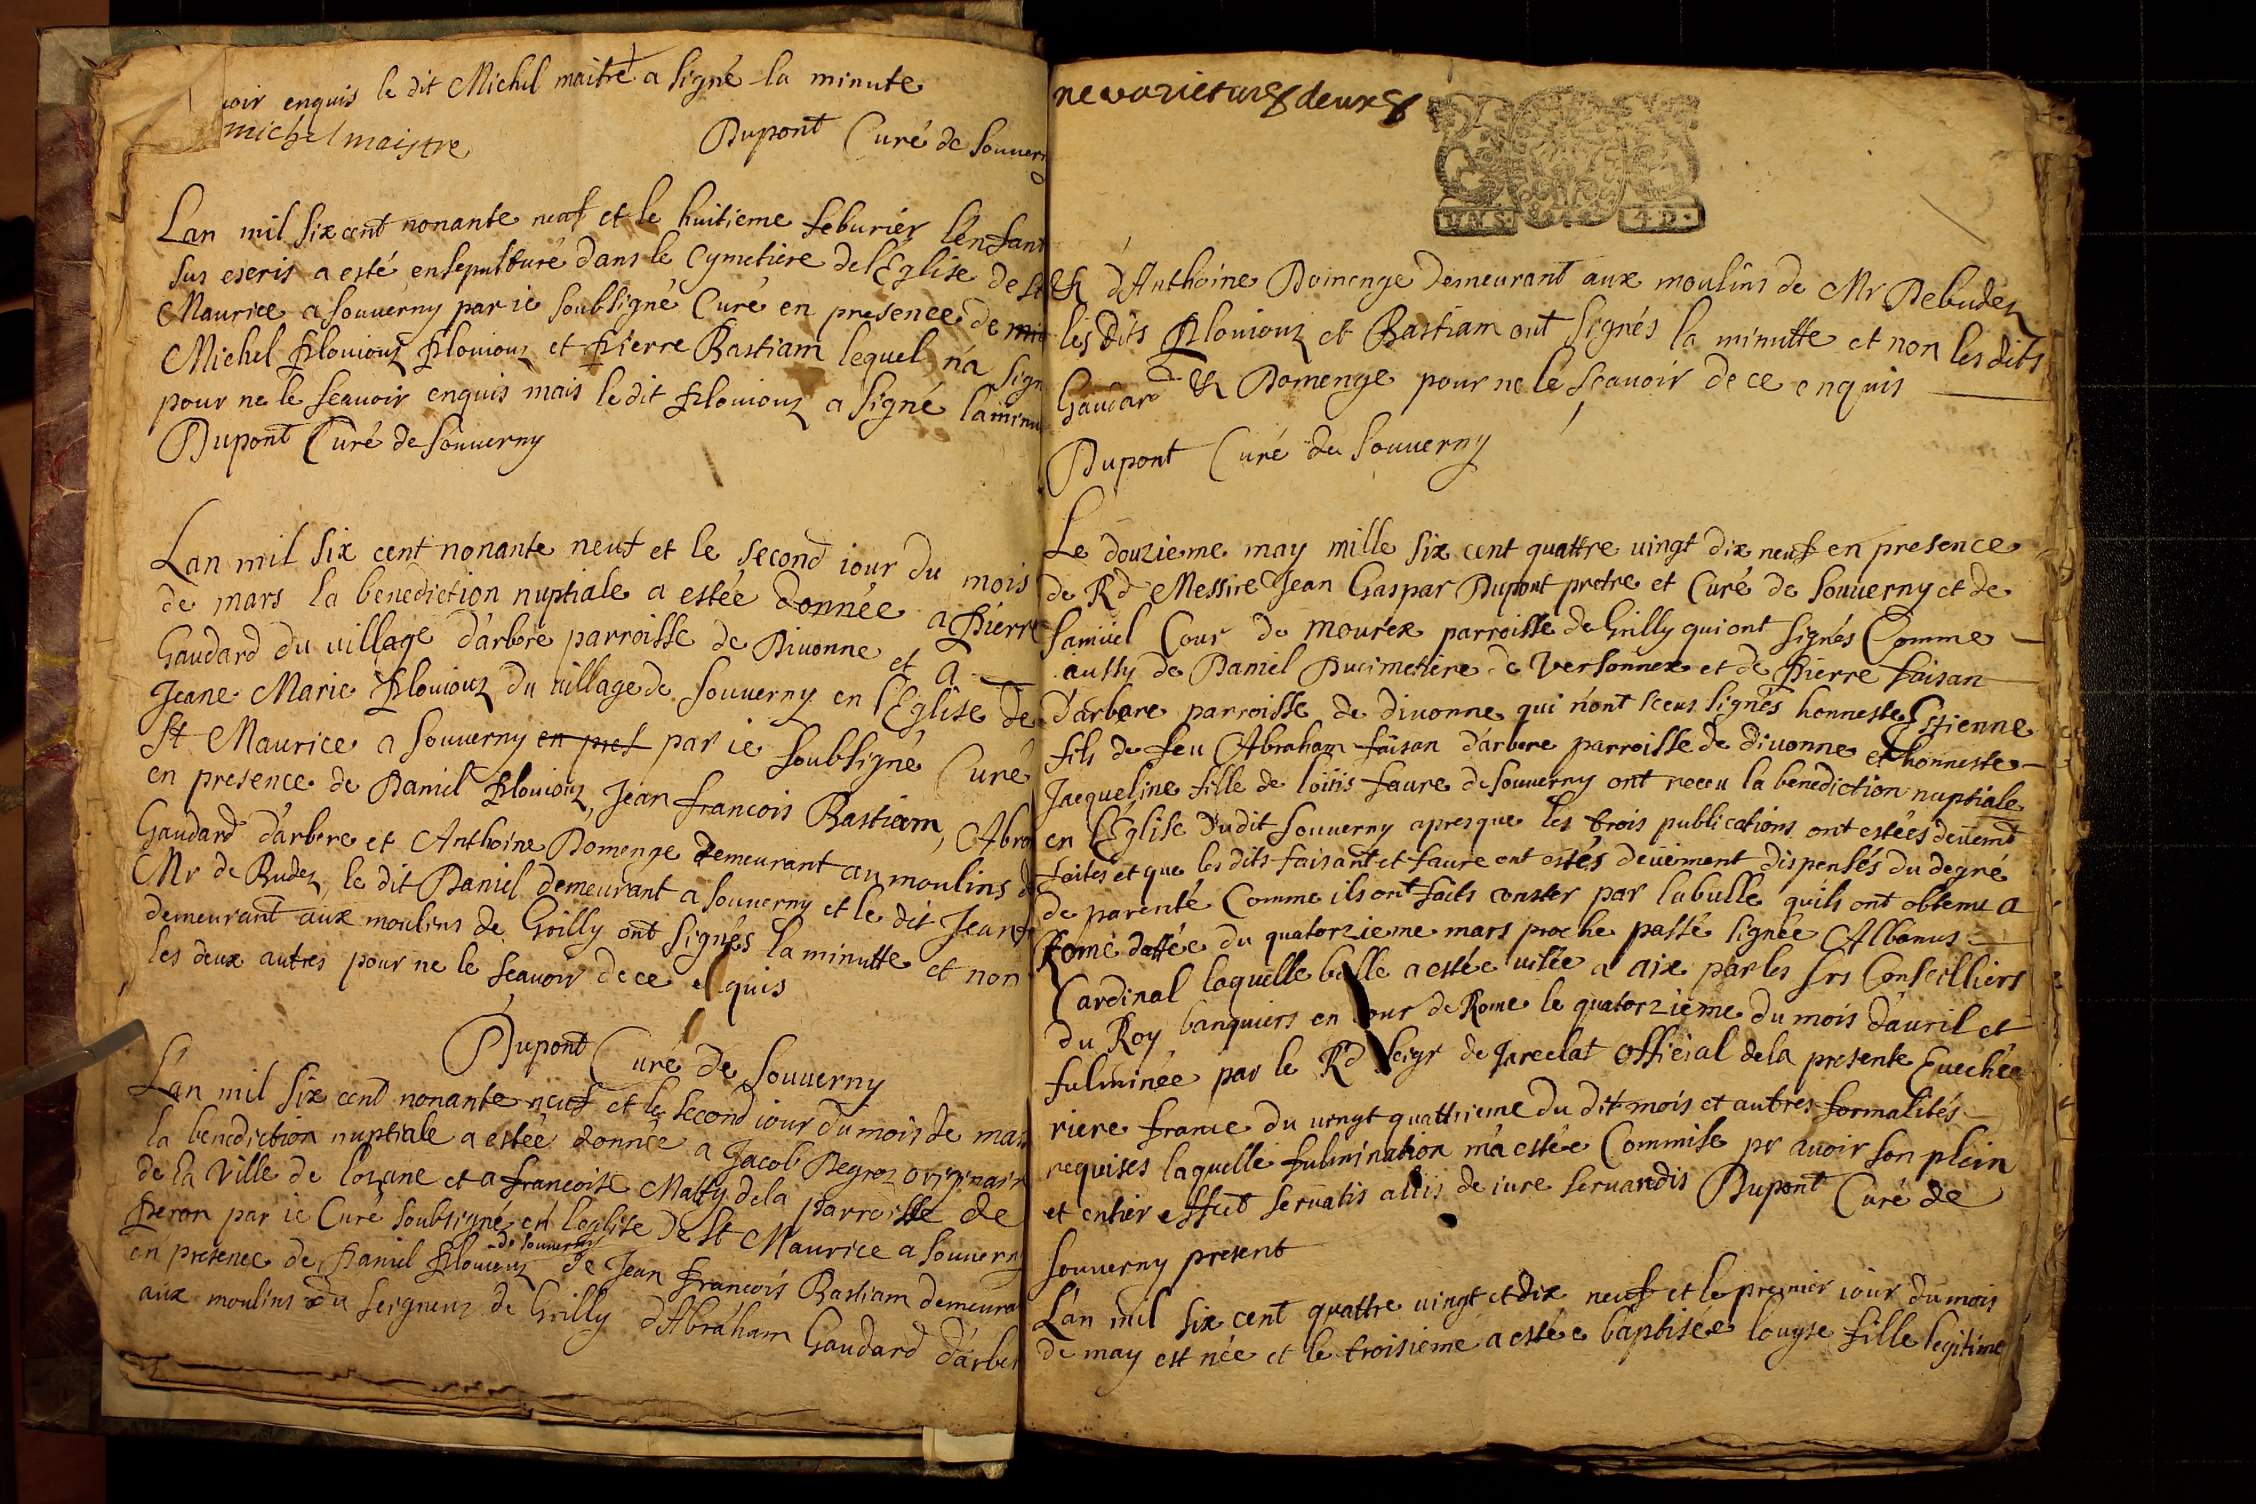 oir enquis le dit Michel maitre a signé la minute
michel maistre
Dupont Curé de Souvern
Lan mil six cent nonante neuf et le huitieme feburier lenfant
sus escris a esté ensepulturé dans le Cymetiere de lEglise de St
Maurice a Souverny par ie soubsigné Curé en presence de
Michel Plouiouz Plouiouz et Pierre Bastiam lequel na sign
pour ne le scauoir enquis mais ledit Plouiouz a signé la minu
Dupont Curé de Souuerny
Lan mil six cent nonante neuf et le second iour du mois
de mars la benediction nuptiale a estée donnée a Pierre
Gaudard du uillage d'arbere parroisse de Diuonne et a
Jeane Marie Plouiouz du uillage de Souuerny en l'Eglise de
St Maurice a Souuerny en pres par ie soubsigné Curé
en presence de Daniel Plouiouz, Jean francois Bastiam, Abra
Gaudard d'arbere et Anthoine Domenge demeurant au moulins d
Mr de Budez, le dit Daniel demeurant a Souuerny et le dit Jean f
demeurant aux moulins de Grilly ont signés la minutte et non
les deux autres pour ne le scauoir de ce enquis
Dupont Curé de Souuerny
L'an mil six cent nonante neuf et le second iour du mois de mar
la benediction nuptiale a estée donnée a Jacob Degroz originair
de la Ville de lozane et a francoise Matty de la parroisse de
Peron par ie Curé soubsigné en l'eglise de St Maurice a Souuerny
de Souuerny
en presence de Daniel Plouiouz de Jean francois Bastiam demeura
aux moulins du Seigneur de Grilly d'Abraham Gaudard d'arber
ne varietur deux
4 D.
& d'Anthoine Domenge demeurant aux moulins de Mr Debudez
les dits Plouiouz et Bastiam ont signés la minutte et non les dits
Gaudard & Domenge pour ne le scauoir de ce enquis
Dupont Curé de Souuerny
Le douzieme may mille six cent quattre uingt dix neuf en presence
de Rd Messire Jean Gaspar Dupont pretre et Curé de Souuerny et de
Samuel Cour de Mourex parroisse de Grilly qui ont signés Comme
aussy de Daniel Ducimetiere de Versonnex et de Pierre faisan
D'arbere parroisse de diuonne qui n'ont sceus signés honneste Estienne
fils de feu Abraham faisan d'arbere parroisse de diuonne et honneste
Jacqueline fille de loüis faure de Souuerny ont receu la benediction nuptiale
en l'Eglise dudit Souuerny apres que les trois publications ont estées deuemt
faites et que les dits faisant et faure ont estés deuëment dispensés du degré
de parenté Comme ils ont faits conster par la bulle quils ont obtenu a
Rome dattée du quatorzieme mars proche passé signée Albanus
Cardinal laquelle bulle a estée uisée a aix par les srs Conseilliers
du Roy banquiers en Cour de Rome le quatorzieme du mois d'auril et
fulminée par le Rd seigr de Jareclat official de la presente Euechée
riere france du uingt quattrieme du dit mois et autres formalités
requises laquelle fulmination m'a estée Commise pr auoir son plein
et entier effect seruatis aliis de iure seruandis Dupont Curé de
Souuerny present
L'an mil six cent quattre uingt et dix neuf et le premier iour du mois
de may est née et le troisieme a estée baptisée louyse fille legitime